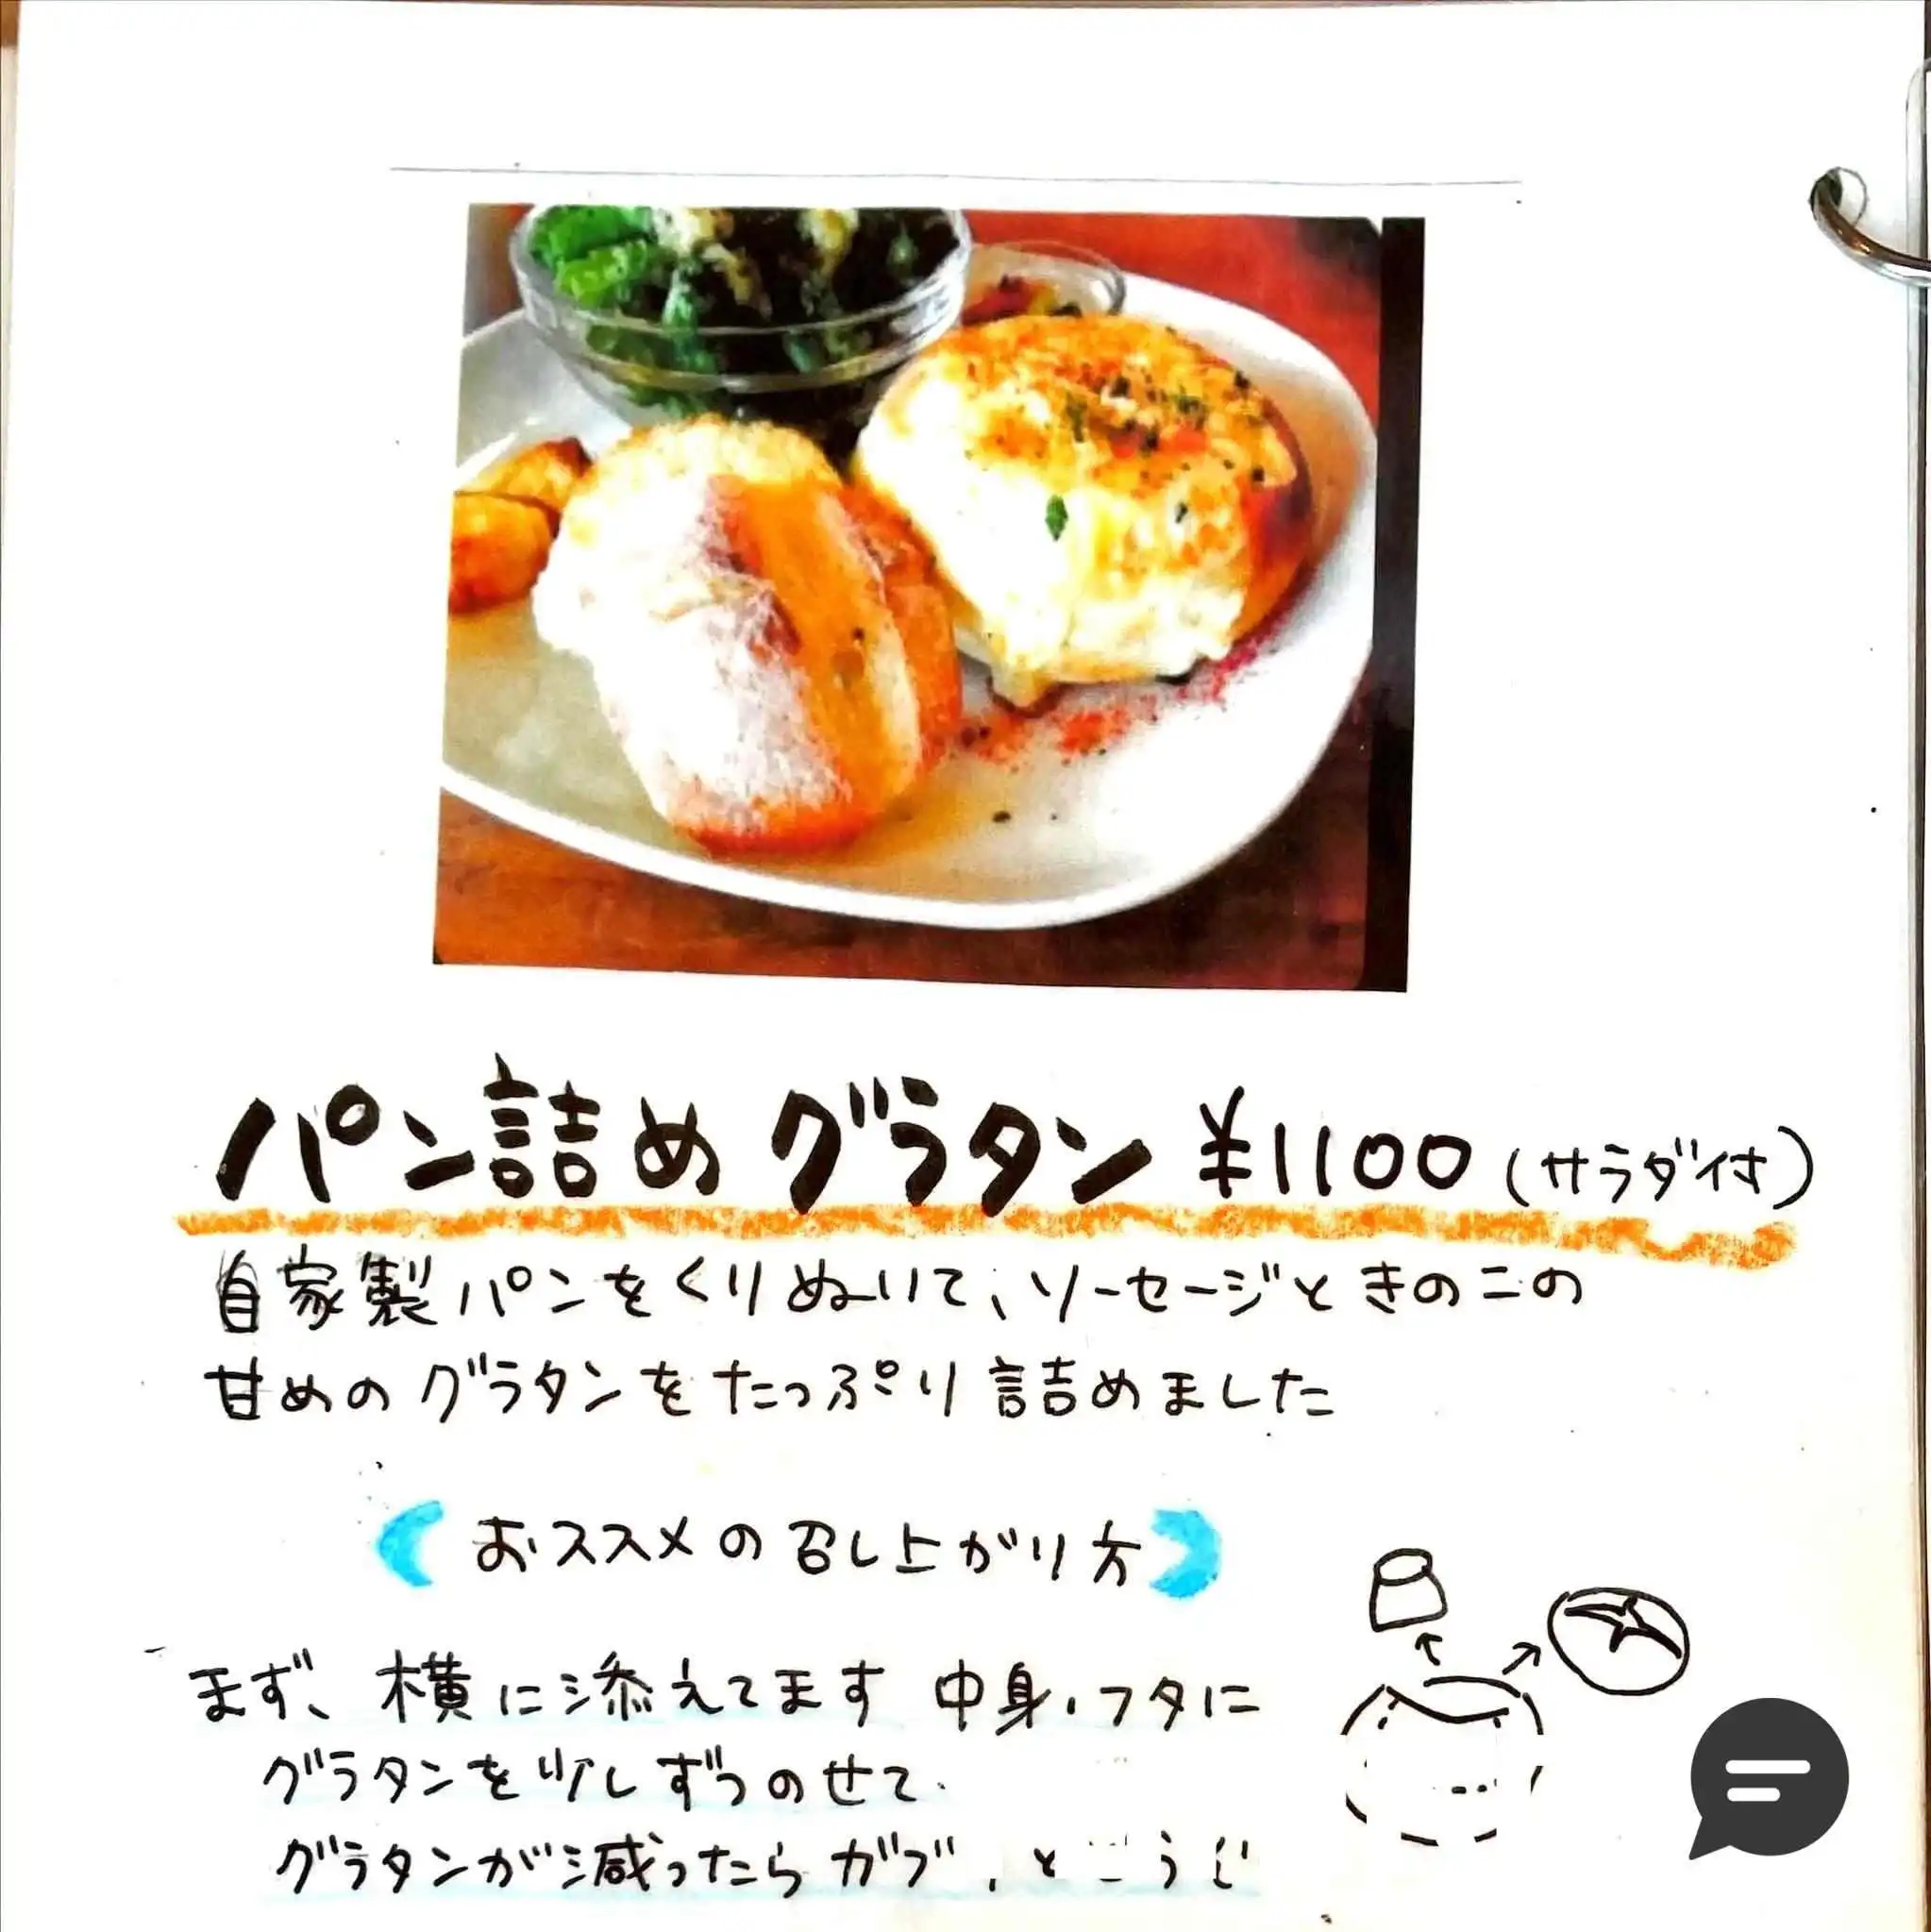 パン詰めグラタン ¥1100 (サラダ付)
自家製パンをくりぬいて、ソーセージときのこの
甘めのグラタンをたっぷり詰めました
おススメの召し上がり方
まず、横に添えてます 中身・フタに
グラタンを少しずつのせて
グラタンが減ったら ガブ